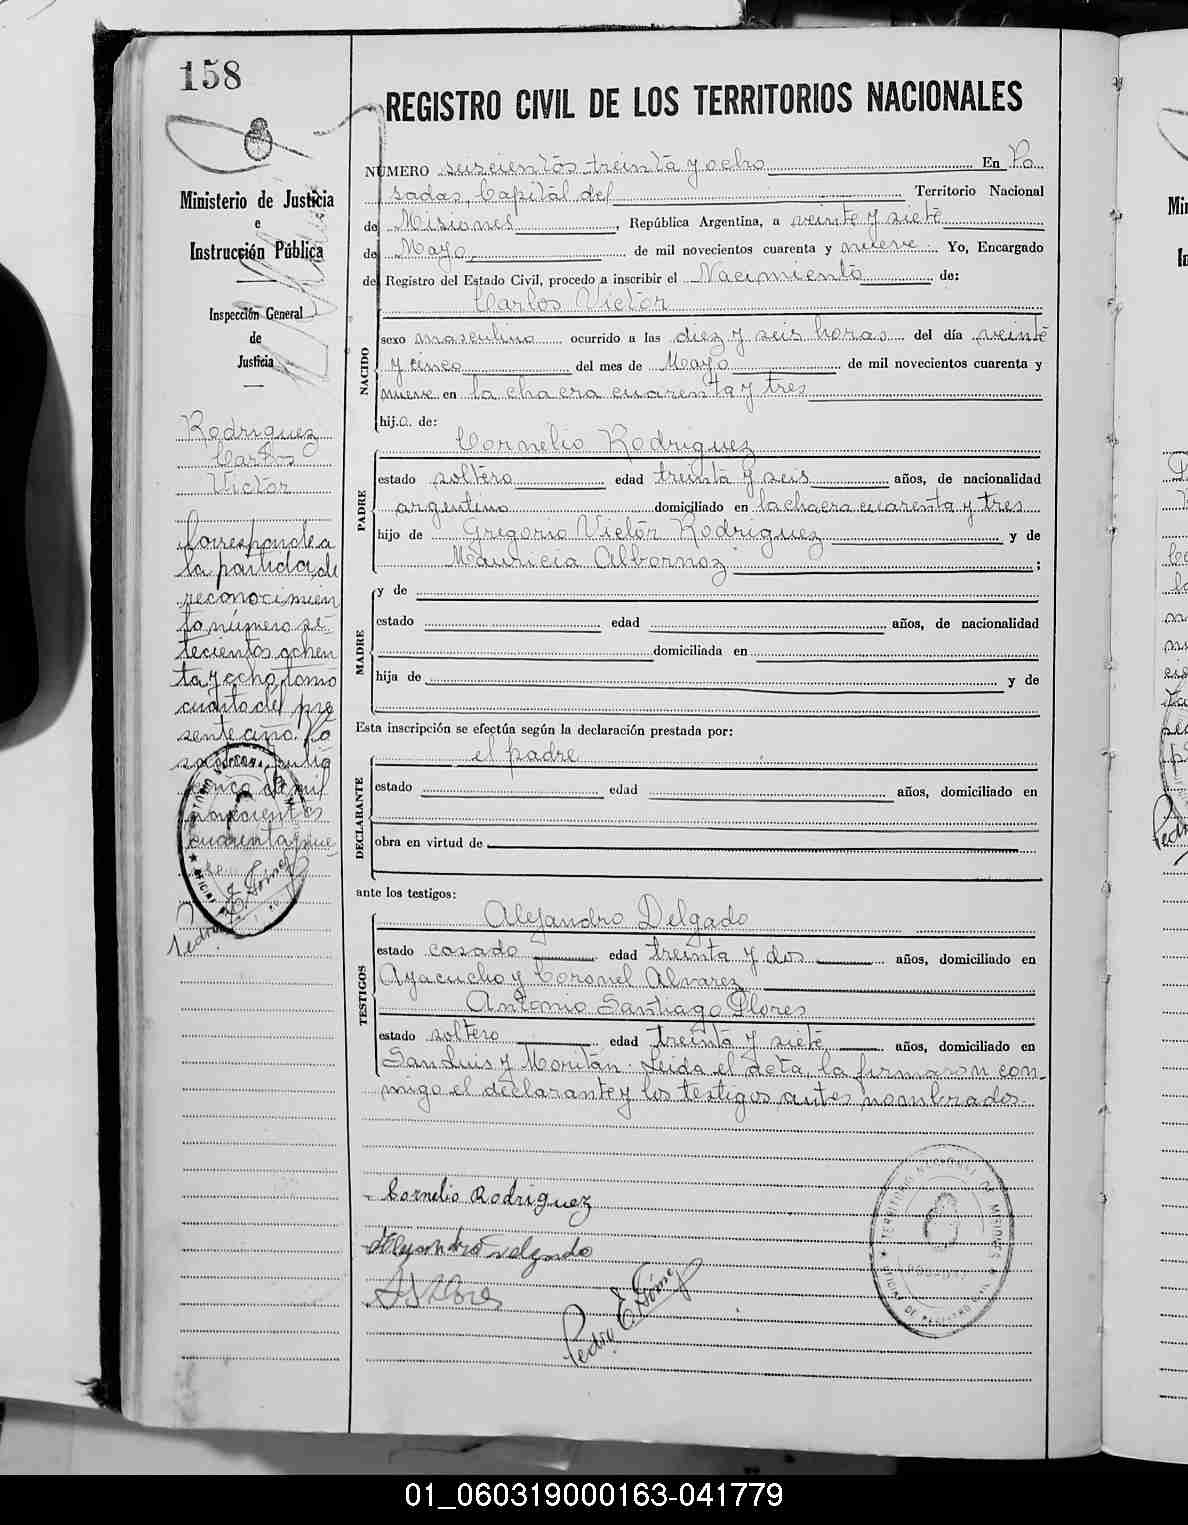 158
REGISTRO CIVIL DE LOS TERRITORIOS NACIONALES
Ministerio de Justicia
e
Instrucción Pública
Inspección General
de
Justicia
Rodriguez
Carlos
Victor
Corresponde a
la partida de
reconocimien
to número se-
tecientos ochen
ta y ocho, tomo
cuarto del pre
sente año. Po
sadas, Julio
de mil
novecientos
cuarenta y nue-
ve
Pedro E. Gómez
NUMERO seiscientos treinta y ocho En Po
sadas, Capital del Territorio Nacional
de Misiones, República Argentina, a veinte y siete
de Mayo de mil novecientos cuarenta y nueve. Yo, Encargado
del Registro del Estado Civil, procedo a inscribir el Nacimiento de:
NACIDO
Carlos Victor
sexo masculino ocurrido a las diez y seis horas del día veinte
y cinco del mes de Mayo de mil novecientos cuarenta y
nueve en la chacra cuarenta y tres
hijo de:
PADRE
Cornelio Rodriguez
estado soltero edad treinta y seis años, de nacionalidad
argentino domiciliado en la chacra cuarenta y tres
hijo de Gregorio Victor Rodriguez y de
Mauricia Albornoz;
MADRE
y de
estado edad años, de nacionalidad
domiciliada en
hija de y de
Esta inscripción se efectúa según la declaración prestada por:
DECLARANTE
el padre
estado edad años, domiciliado en
obra en virtud de
ante los testigos:
TESTIGOS
Alejandro Delgado
estado casado edad treinta y dos años, domiciliado en
Ayacucho y Coronel Alvarez
Antonio Santiago Flores
estado soltero edad treinta y siete años, domiciliado en
San Luis y Moritán. Leida el acta, la firmaron con-
migo el declarante y los testigos antes nombrados.
Cornelio Rodriguez
Alejandro Delgado
A S Flores
Pedro E. Gómez
TERRITORIO NACIONAL DE MISIONES
POSADAS
OFICIAL DE REGISTRO CIVIL
01_060319000163-041779